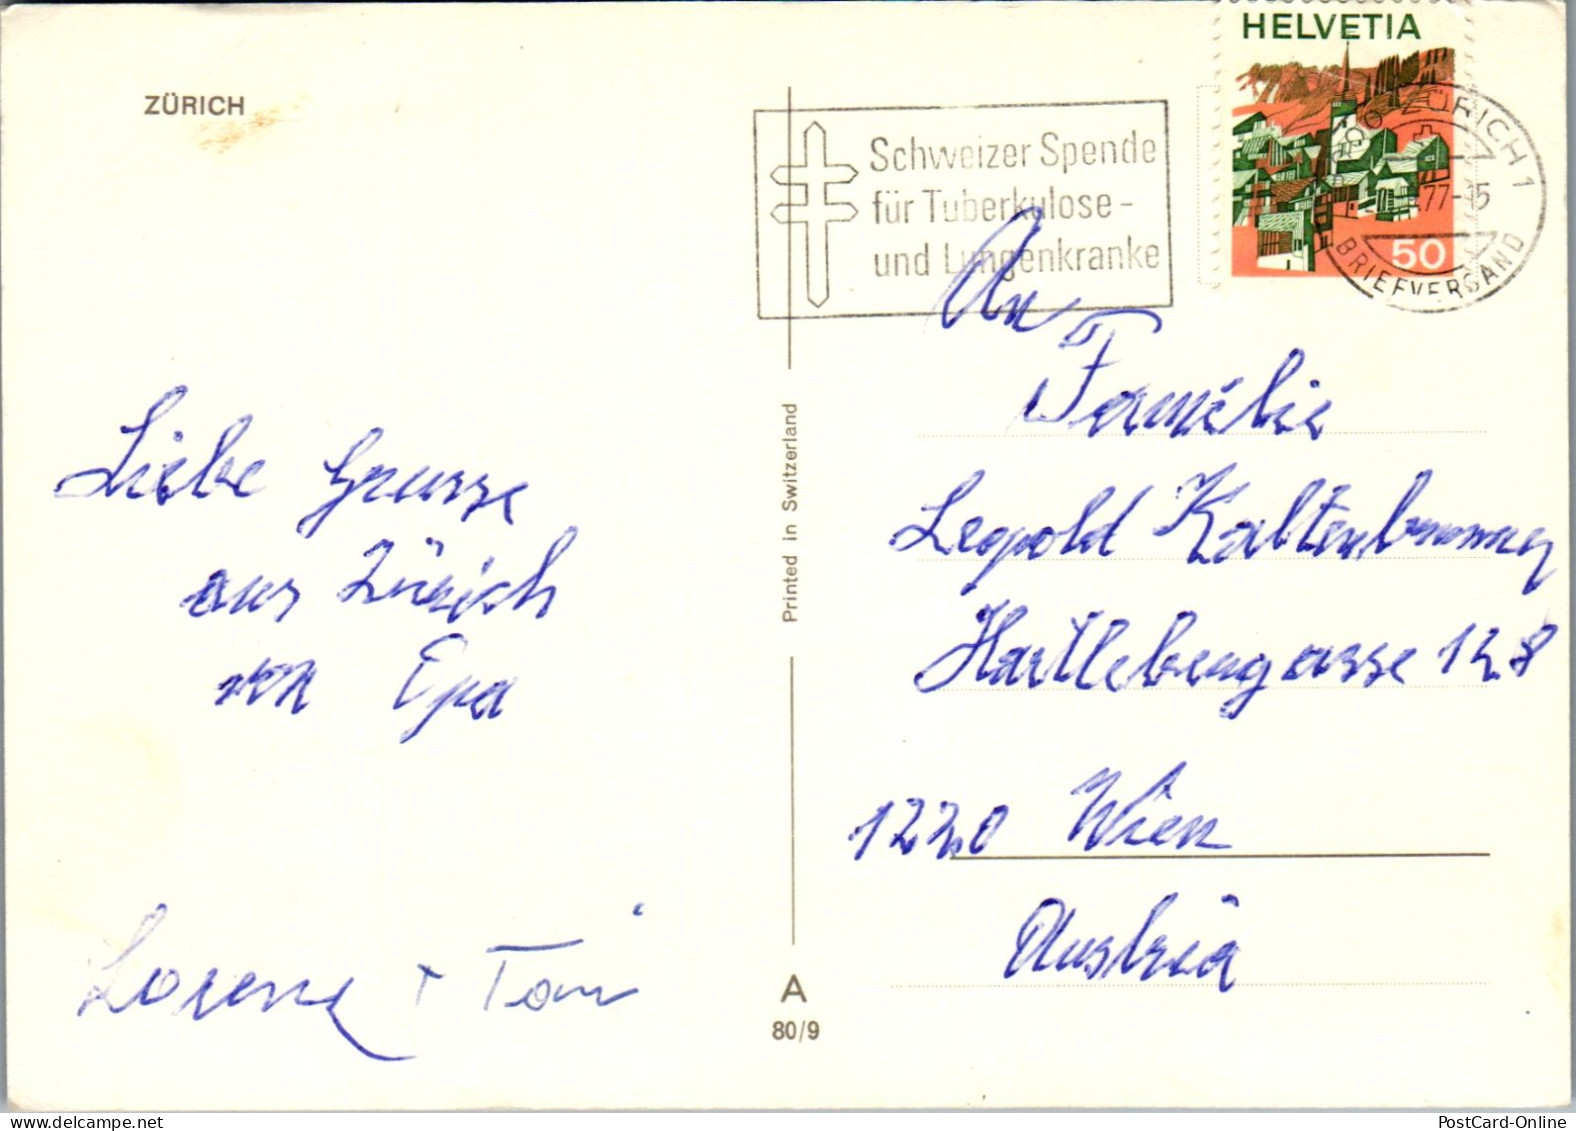 ZÜRICH
HELVETIA
50
ZÜRICH 1
77-15
BRIEFVERSAND
Schweizer Spende
für Tuberkulose-
und Lungenkranke
An
Familie
Leopold Kaltenbrunner
Hartlebengasse 128
1220 Wien
Austria
Liebe Grusse
aus Zürich
von Opa
Lorenz + Toni
Printed in Switzerland
A
80/9
PostCard-Online